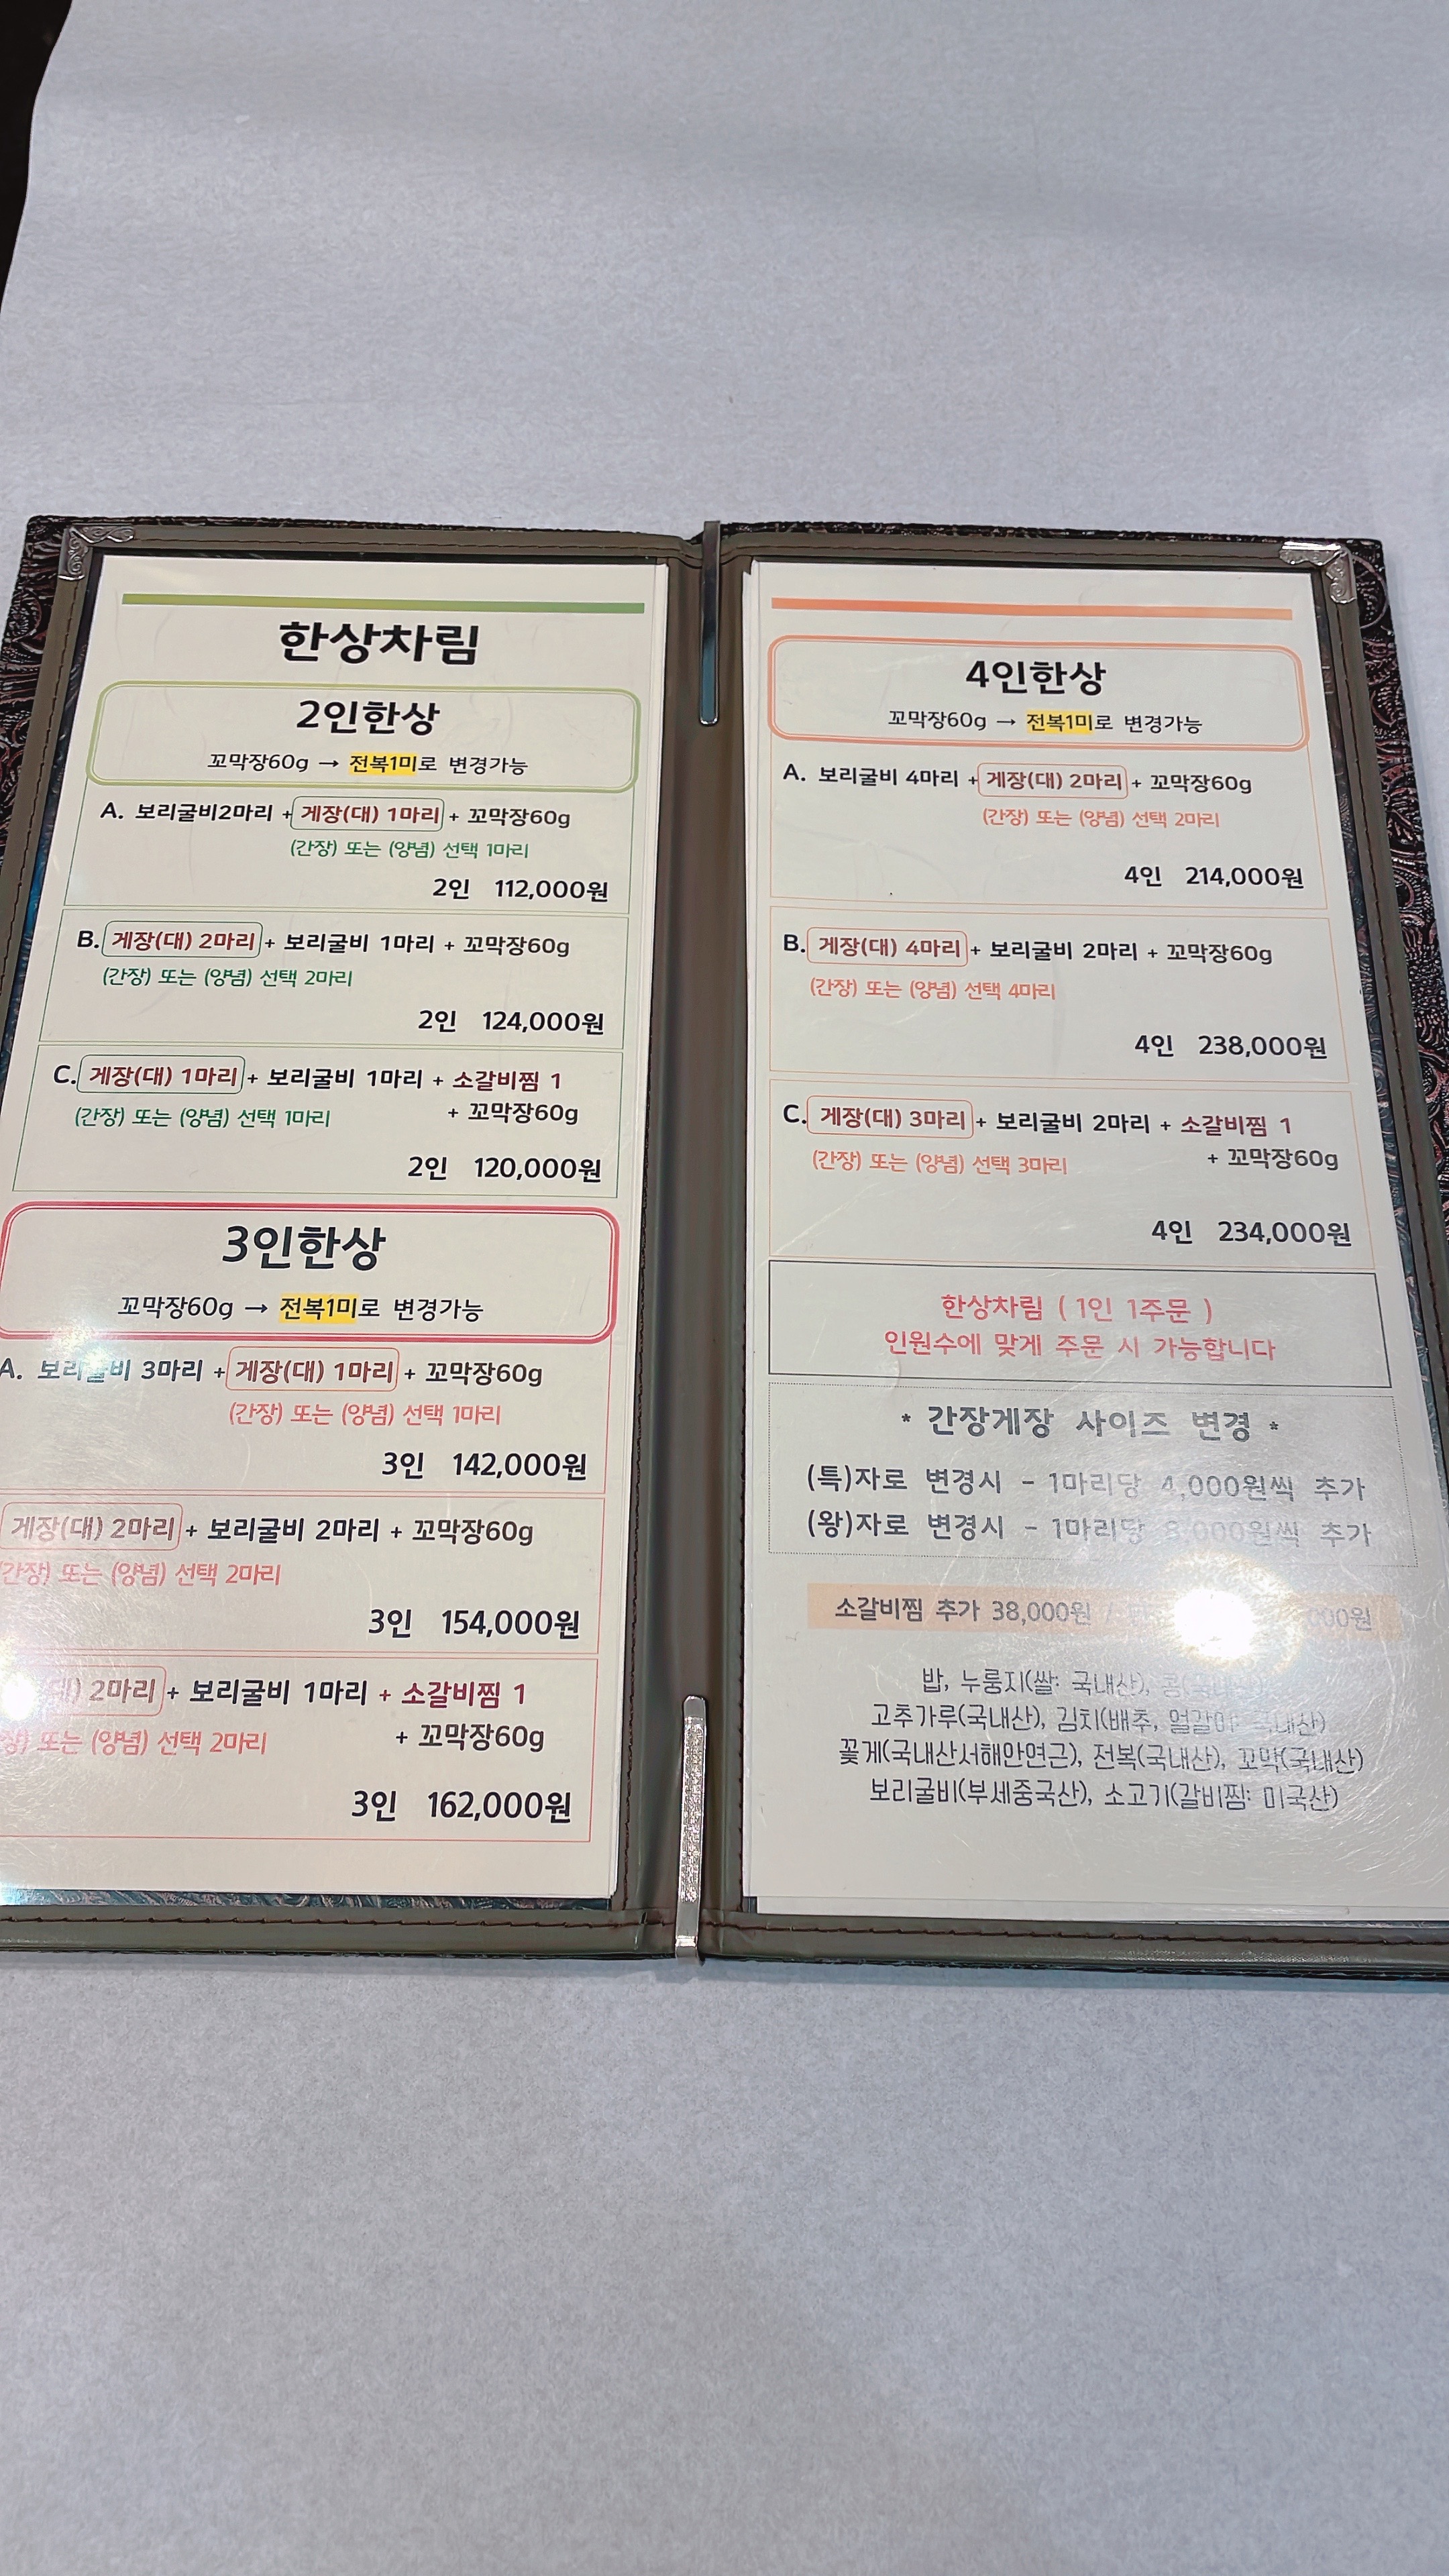 한상차림
2인한상
꼬막장60g → 전복1미로 변경가능
A. 보리굴비2마리 + 게장(대) 1마리 + 꼬막장60g
(간장) 또는 (양념) 선택 1마리
2인 112,000원
B. 게장(대) 2마리 + 보리굴비 1마리 + 꼬막장60g
(간장) 또는 (양념) 선택 2마리
2인 124,000원
C. 게장(대) 1마리 + 보리굴비 1마리 + 소갈비찜 1
(간장) 또는 (양념) 선택 1마리 + 꼬막장60g
2인 120,000원
3인한상
꼬막장60g → 전복1미로 변경가능
A. 보리굴비 3마리 + 게장(대) 1마리 + 꼬막장60g
(간장) 또는 (양념) 선택 1마리
3인 142,000원
게장(대) 2마리 + 보리굴비 2마리 + 꼬막장60g
간장) 또는 (양념) 선택 2마리
3인 154,000원
2마리 + 보리굴비 1마리 + 소갈비찜 1
또는 (양념) 선택 2마리 + 꼬막장60g
3인 162,000원
4인한상
꼬막장60g → 전복1미로 변경가능
A. 보리굴비 4마리 + 게장(대) 2마리 + 꼬막장60g
(간장) 또는 (양념) 선택 2마리
4인 214,000원
B. 게장(대) 4마리 + 보리굴비 2마리 + 꼬막장60g
(간장) 또는 (양념) 선택 4마리
4인 238,000원
C. 게장(대) 3마리 + 보리굴비 2마리 + 소갈비찜 1
(간장) 또는 (양념) 선택 3마리 + 꼬막장60g
4인 234,000원
한상차림 ( 1인 1주문 )
인원수에 맞게 주문 시 가능합니다
* 간장게장 사이즈 변경 *
(특)자로 변경시 - 1마리당 4,000원씩 추가
(왕)자로 변경시 - 1마리당 추가
소갈비찜 추가 38,000원 /
밥, 누룽지(쌀: 국내산),
고추가루(국내산), 김치(배추, 얼갈이: 국내산)
꽃게(국내산서해안연근), 전복(국내산), 꼬막(국내산)
보리굴비(부세중국산), 소고기(갈비찜: 미국산)